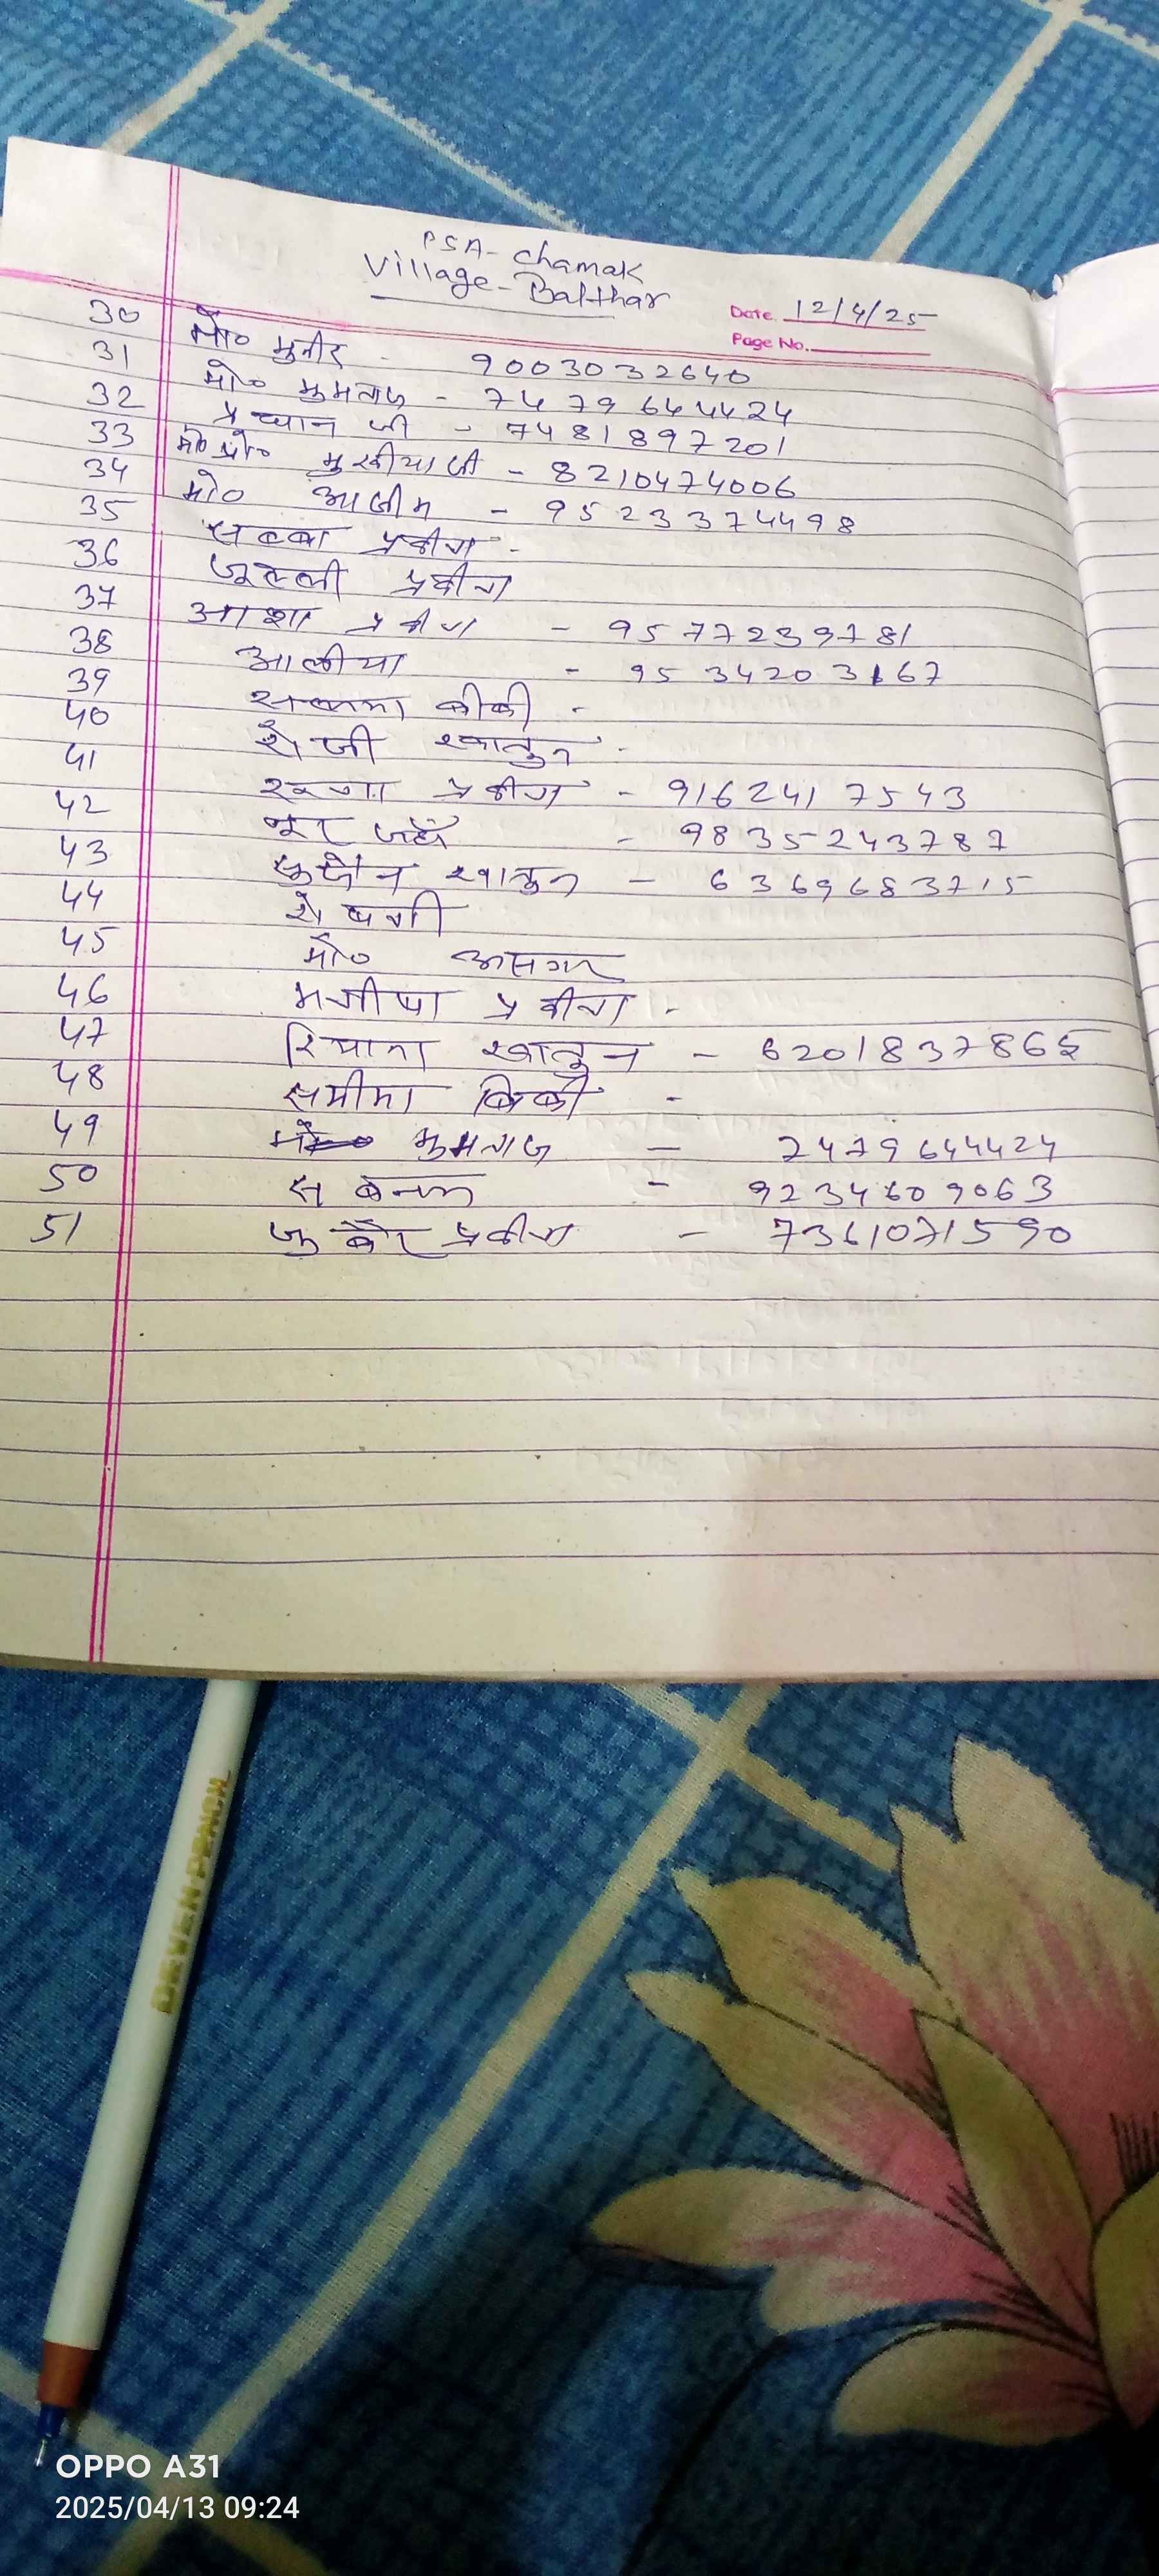 PSA- Chamak
Village - Balthar
Date. 12/4/25
Page No.
30 मो० मुनीर - 9003032640
31 मो० मुमताज - 7479644424
32 प्रधान जी - 7481897201
33 मुखीया जी - 8210474006
34 मो० आजीम - 9523374498
35 प्रवीण -
36 प्रवीण
37 आशा प्रवीण - 9577239781
38 आलीया - 9534203167
39 बीबी -
40 खातुन -
41 प्रवीण - 9162417543
42 नूर जहाँ - 9835243787
43 खातुन - 6369683715
44
45 मो० असगर
46 प्रवीण -
47 खातुन - 620183786
48 समीमा बिबी -
49 मुमताज - 7479644424
50 - 9234609063
51 प्रवीण - 7361071590
DEVEN-PENCIL
OPPO A31
2025/04/13 09:24